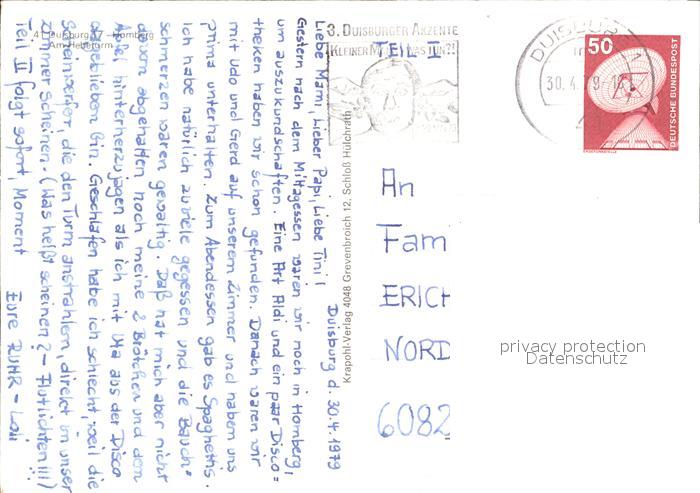 4100 Duisburg 17 - Homberg
Am Hebeturm
3. DUISBURGER AKZENTE
KLEINER MANN WAS TUN?!
TEIL I
DUISBURG 1
30.4.79
50
DEUTSCHE BUNDESPOST
ERDEFUNKSTELLE
Duisburg d. 30.4.1979
Liebe Mami, Lieber Papi, Liebe Tini!
Gestern nach dem Mittagessen waren wir noch in Homberg,
um auszukundschaften. Eine Art Aldi und ein paar Disco=
theken haben wir schon gefunden. Danach waren wir
mit Udo und Gerd auf unserem Zimmer und haben uns
prima unterhalten. Zum Abendessen gab es Spaghettis.
Ich habe natürlich zuviele gegessen und die Bauch-
schmerzen waren gewaltig. Daß hat mich aber nicht
davon abgehalten noch meine 2 Brötchen und den
Apfel hinterherzujagen als ich mit Uta aus der Disco
geblieben bin. Geschlafen habe ich schlecht, weil die
Scheinwerfer, die den Turm anstrahlen, direkt in unser
Zimmer scheinen. (Was heißt scheinen? - Flutlichten!!!)
Teil II folgt sofort, Moment
Eure RUHR-Loii
Krapohl-Verlag 4048 Grevenbroich 12, Schloß Hülchrath
An
Fam
ERICH
NORD
6082
privacy protection
Datenschutz